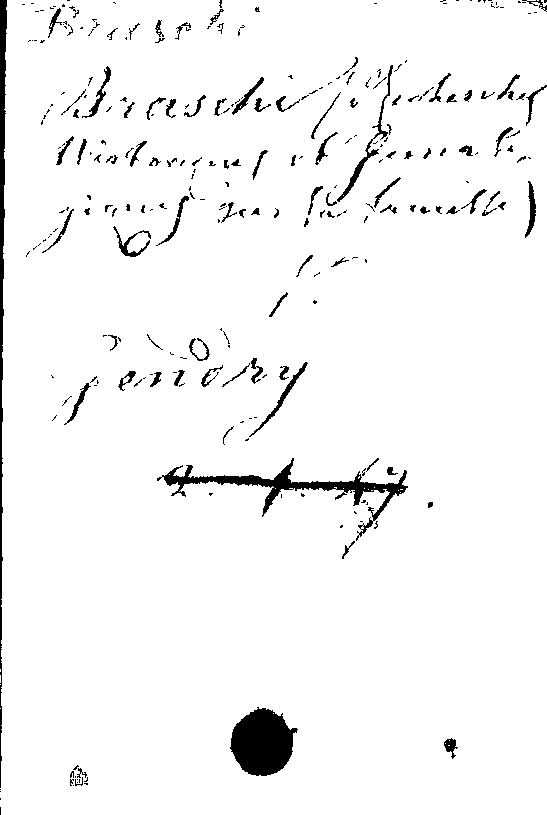 Braschi
Braschi (Recherches
Historiques et Généalo-
giques sur la famille)
v.
Gendry
2. f. 47.